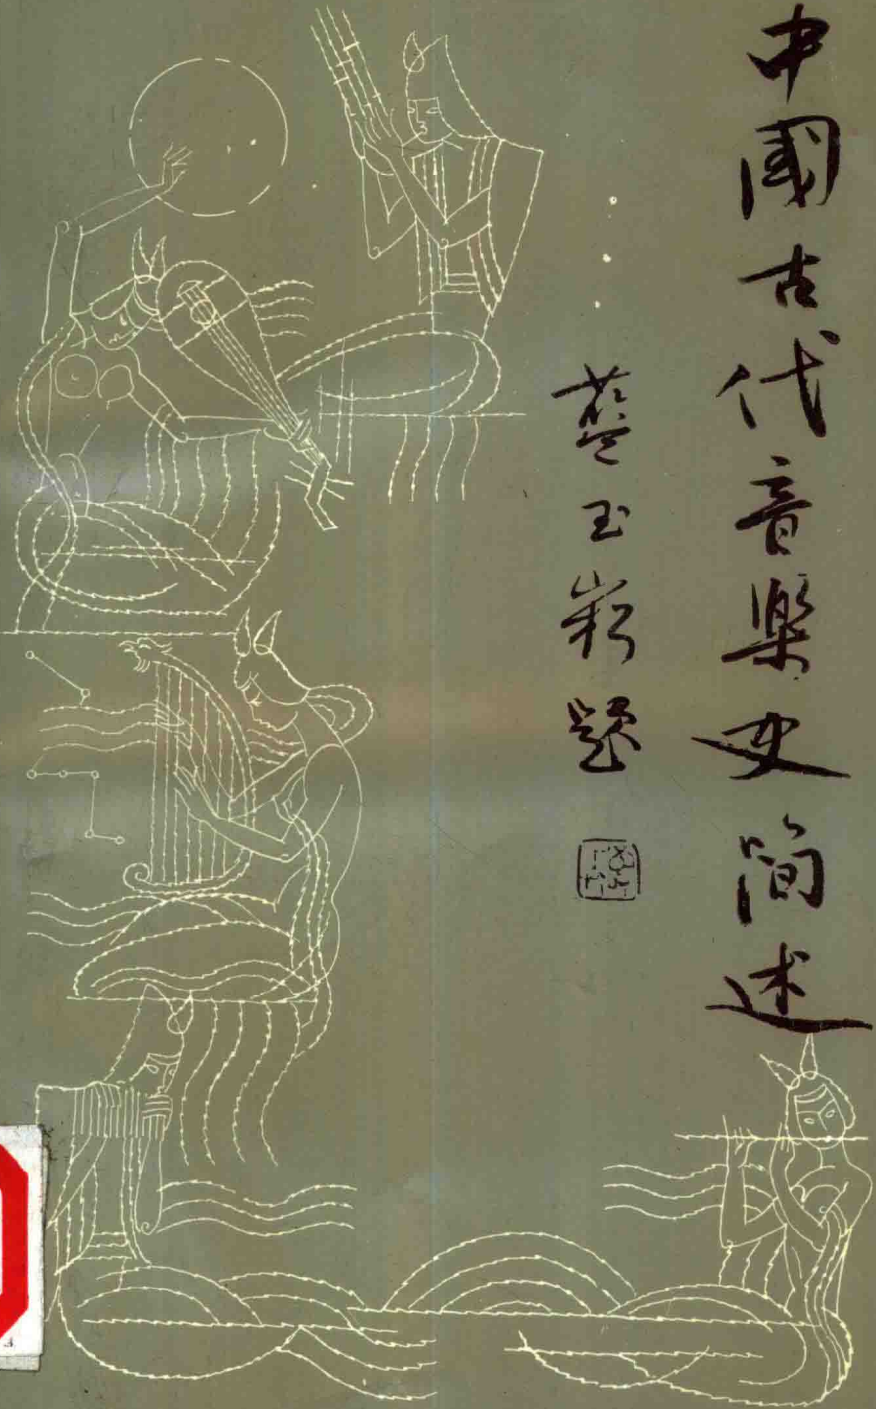 中國古代音樂史简述
藍玉崧题